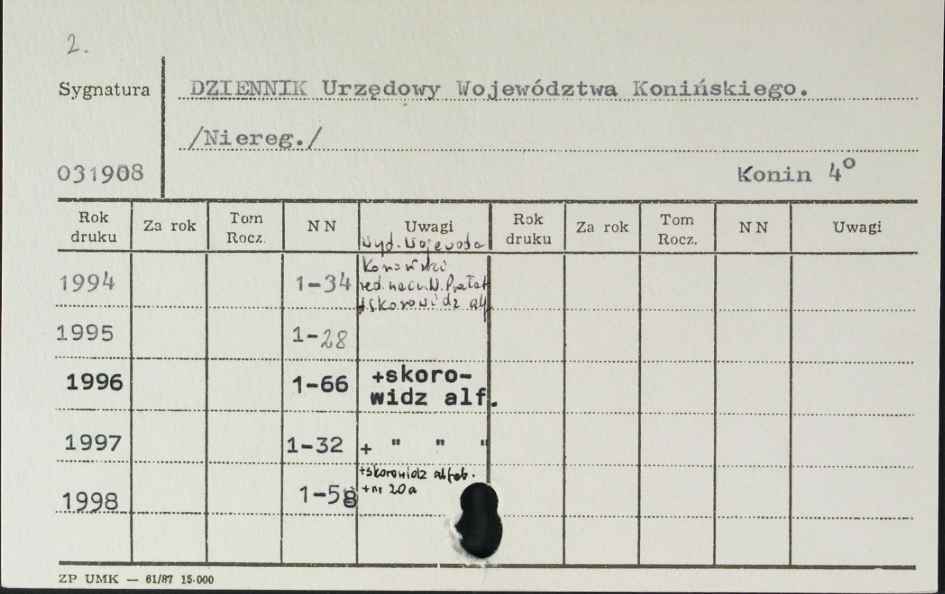 2.
Sygnatura DZIENNIK Urzędowy Województwa Konińskiego.
/Niereg./
031908 Konin 4°
Rok druku Za rok Tom Rocz. NN Uwagi Rok druku Za rok Tom Rocz. NN Uwagi
Wyd. Wojewoda
Koniński
1994 1-34 red. nacz. W. Prałat
+skorowidz alf.
1995 1-28
1996 1-66 +skoro-
widz alf.
1997 1-32 + " " "
+skorowidz alfab.
1998 1-58 +nr 20a
ZP UMK — 61/87 15.000